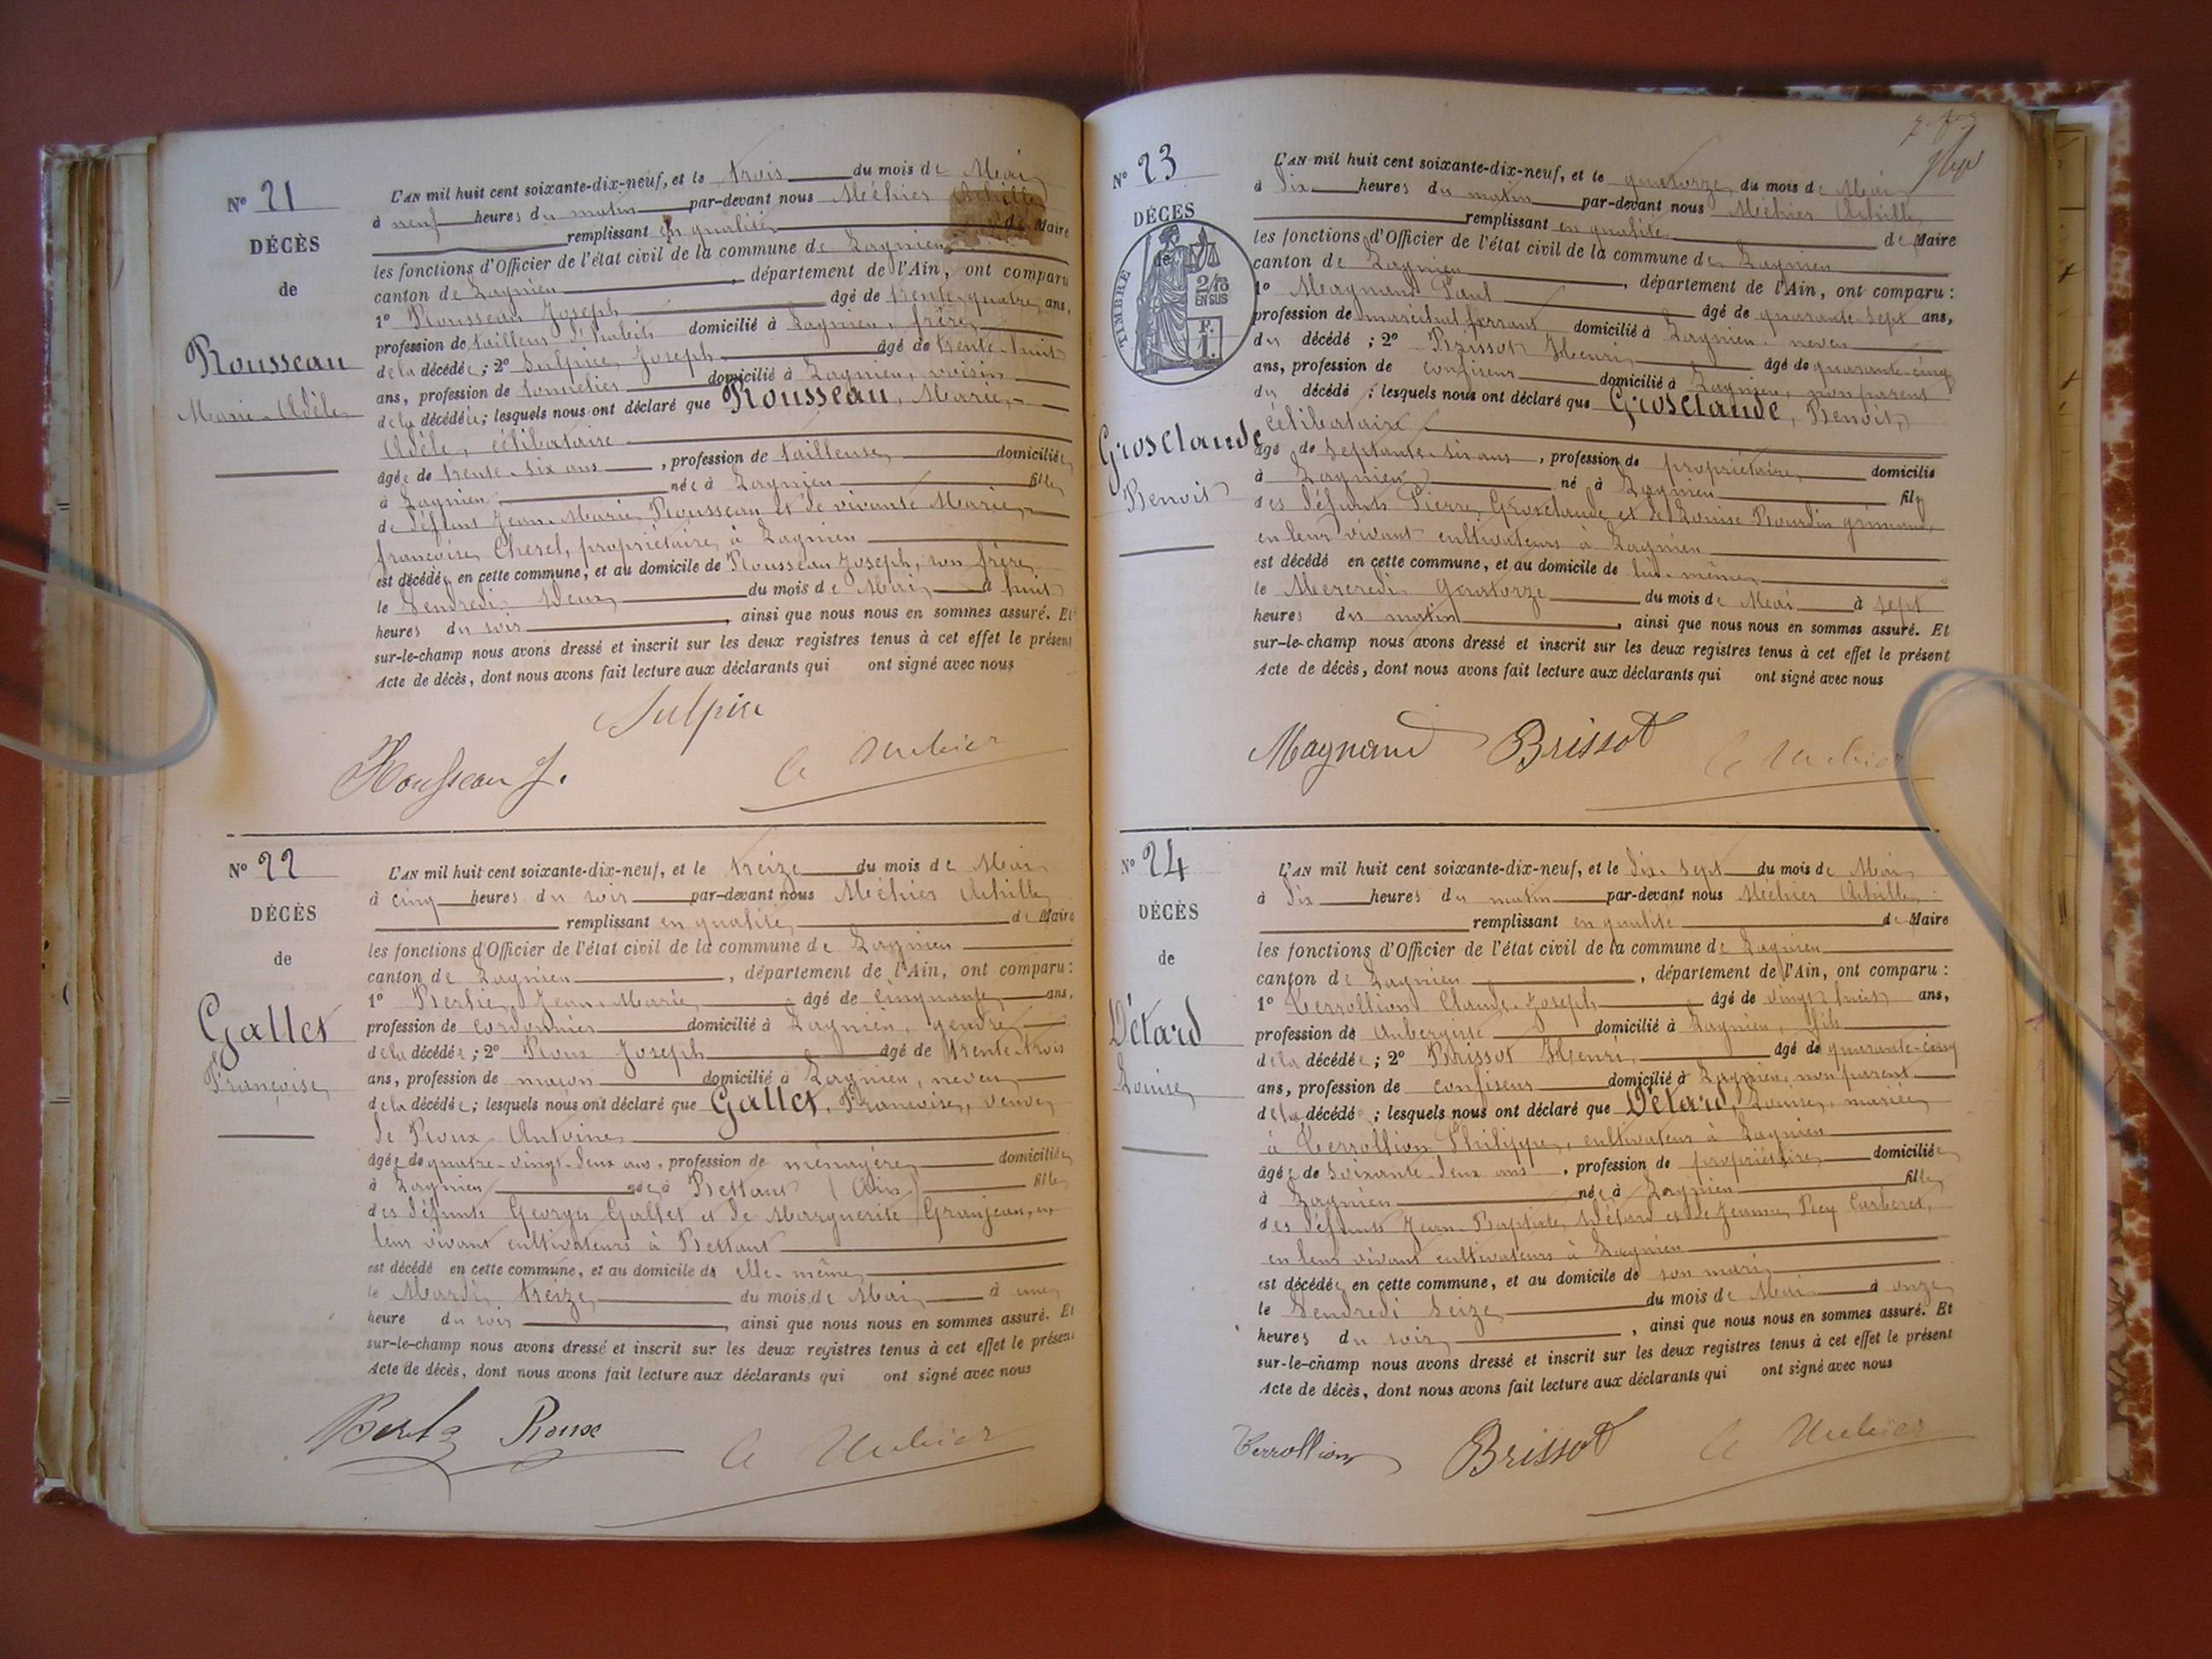 N° 21
DÉCÈS
de
Rousseau
Marie-Adèle
L'AN mil huit cent soixante-dix-neuf, et le trois du mois de Mai
à neuf heures du matin par-devant nous Méhier Achille
remplissant en qualité de Maire
les fonctions d'Officier de l'état civil de la commune de Lagnieu
canton de Lagnieu, département de l'Ain, ont comparu
1° Rousseau Joseph âgé de trente-quatre ans,
profession de tailleur d'habits domicilié à Lagnieu, frère
de la décédée; 2° Sulpice Joseph âgé de trente-huit
ans, profession de tonnelier domicilié à Lagnieu, voisin
de la décédée; lesquels nous ont déclaré que Rousseau, Marie-
Adèle, célibataire
âgée de trente-six ans, profession de tailleuse domiciliée
à Lagnieu née à Lagnieu fille
de défunt Jean-Marie Rousseau et de vivante Marie-
françoise Cherel, propriétaire, à Lagnieu
est décédée en cette commune, et au domicile de Rousseau Joseph, son frère
le Vendredi deux du mois de Mai à huit
heures du soir, ainsi que nous nous en sommes assuré. Et
sur-le-champ nous avons dressé et inscrit sur les deux registres tenus à cet effet le présent
Acte de décès, dont nous avons fait lecture aux déclarants qui ont signé avec nous
Sulpice
Rousseau J.
A Méhier
N° 22
DÉCÈS
de
Gallet
Françoise
L'AN mil huit cent soixante-dix-neuf, et le treize du mois de Mai
à cinq heures du soir par-devant nous Méhier Achille
remplissant en qualité de Maire
les fonctions d'Officier de l'état civil de la commune de Lagnieu
canton de Lagnieu, département de l'Ain, ont comparu :
1° Jean-Marie âgé de cinquante ans,
profession de cordonnier domicilié à Lagnieu, gendre
de la décédée; 2° Roux Joseph âgé de trente-trois
ans, profession de maçon domicilié à Lagnieu, neveu
de la décédée; lesquels nous ont déclaré que Gallet, Françoise, veuve
de Roux Antoine
âgée de quatre-vingt-deux ans, profession de ménagère domiciliée
à Lagnieu née à Bettant (Ain) fille
des défunts Georges Gallet et de Marguerite Granjean, en
leur vivant cultivateurs à Bettant
est décédé en cette commune, et au domicile de elle-même
le Mardi treize du mois de Mai à une
heure du soir, ainsi que nous nous en sommes assuré. Et
sur-le-champ nous avons dressé et inscrit sur les deux registres tenus à cet effet le présent
Acte de décès, dont nous avons fait lecture aux déclarants qui ont signé avec nous
Roux
A Méhier
N° 23
DÉCÈS
de
TIMBRE
2/10
EN SUS
F.
1.
Grosclaude
Benoit
L'AN mil huit cent soixante-dix-neuf, et le quatorze du mois de Mai
à dix heures du matin par-devant nous Méhier Achille
remplissant en qualité de Maire
les fonctions d'Officier de l'état civil de la commune de Lagnieu
canton de Lagnieu, département de l'Ain, ont comparu :
1° Magnand Paul âgé de quarante-sept ans,
profession de maréchal ferrant domicilié à Lagnieu, neveu
du décédé; 2° Brissot Henri âgé de quarante-cinq
ans, profession de confiseur domicilié à Lagnieu, non parent
du décédé; lesquels nous ont déclaré que Grosclaude, Benoit,
célibataire
âgé de septante-six ans, profession de propriétaire domicilié
à Lagnieu né à Lagnieu fils
des défunts Pierre Grosclaude et de Louise Bourdin
en leur vivant cultivateurs à Lagnieu
est décédé en cette commune, et au domicile de lui-même
le Mercredi Quatorze du mois de Mai à sept
heures du matin, ainsi que nous nous en sommes assuré. Et
sur-le-champ nous avons dressé et inscrit sur les deux registres tenus à cet effet le présent
Acte de décès, dont nous avons fait lecture aux déclarants qui ont signé avec nous
Magnand Brissot A Méhier
N° 24
DÉCÈS
de
Détard
Louise
L'AN mil huit cent soixante-dix-neuf, et le dix-sept du mois de Mai
à dix heures du matin par-devant nous Méhier Achille
remplissant en qualité de Maire
les fonctions d'Officier de l'état civil de la commune de Lagnieu
canton de Lagnieu, département de l'Ain, ont comparu :
1° Verrollion Claude-Joseph âgé de vingt-huit ans,
profession de Aubergiste domicilié à Lagnieu, fils
de la décédée; 2° Brissot Henri âgé de quarante-cinq
ans, profession de confiseur domicilié à Lagnieu, non parent
de la décédé; lesquels nous ont déclaré que Détard, Louise, mariée
à Verrollion Philippe, cultivateur à Lagnieu
âgée de soixante-deux ans, profession de propriétaire domiciliée
à Lagnieu née à Lagnieu fille
des défunts Jean-Baptiste Détard et de Jeanne
en leur vivant cultivateurs à Lagnieu
est décédée en cette commune, et au domicile de son mari
le Vendredi Seize du mois de Mai à onze
heures du soir, ainsi que nous nous en sommes assuré. Et
sur-le-champ nous avons dressé et inscrit sur les deux registres tenus à cet effet le présent
Acte de décès, dont nous avons fait lecture aux déclarants qui ont signé avec nous
Verrollion Brissot A Méhier